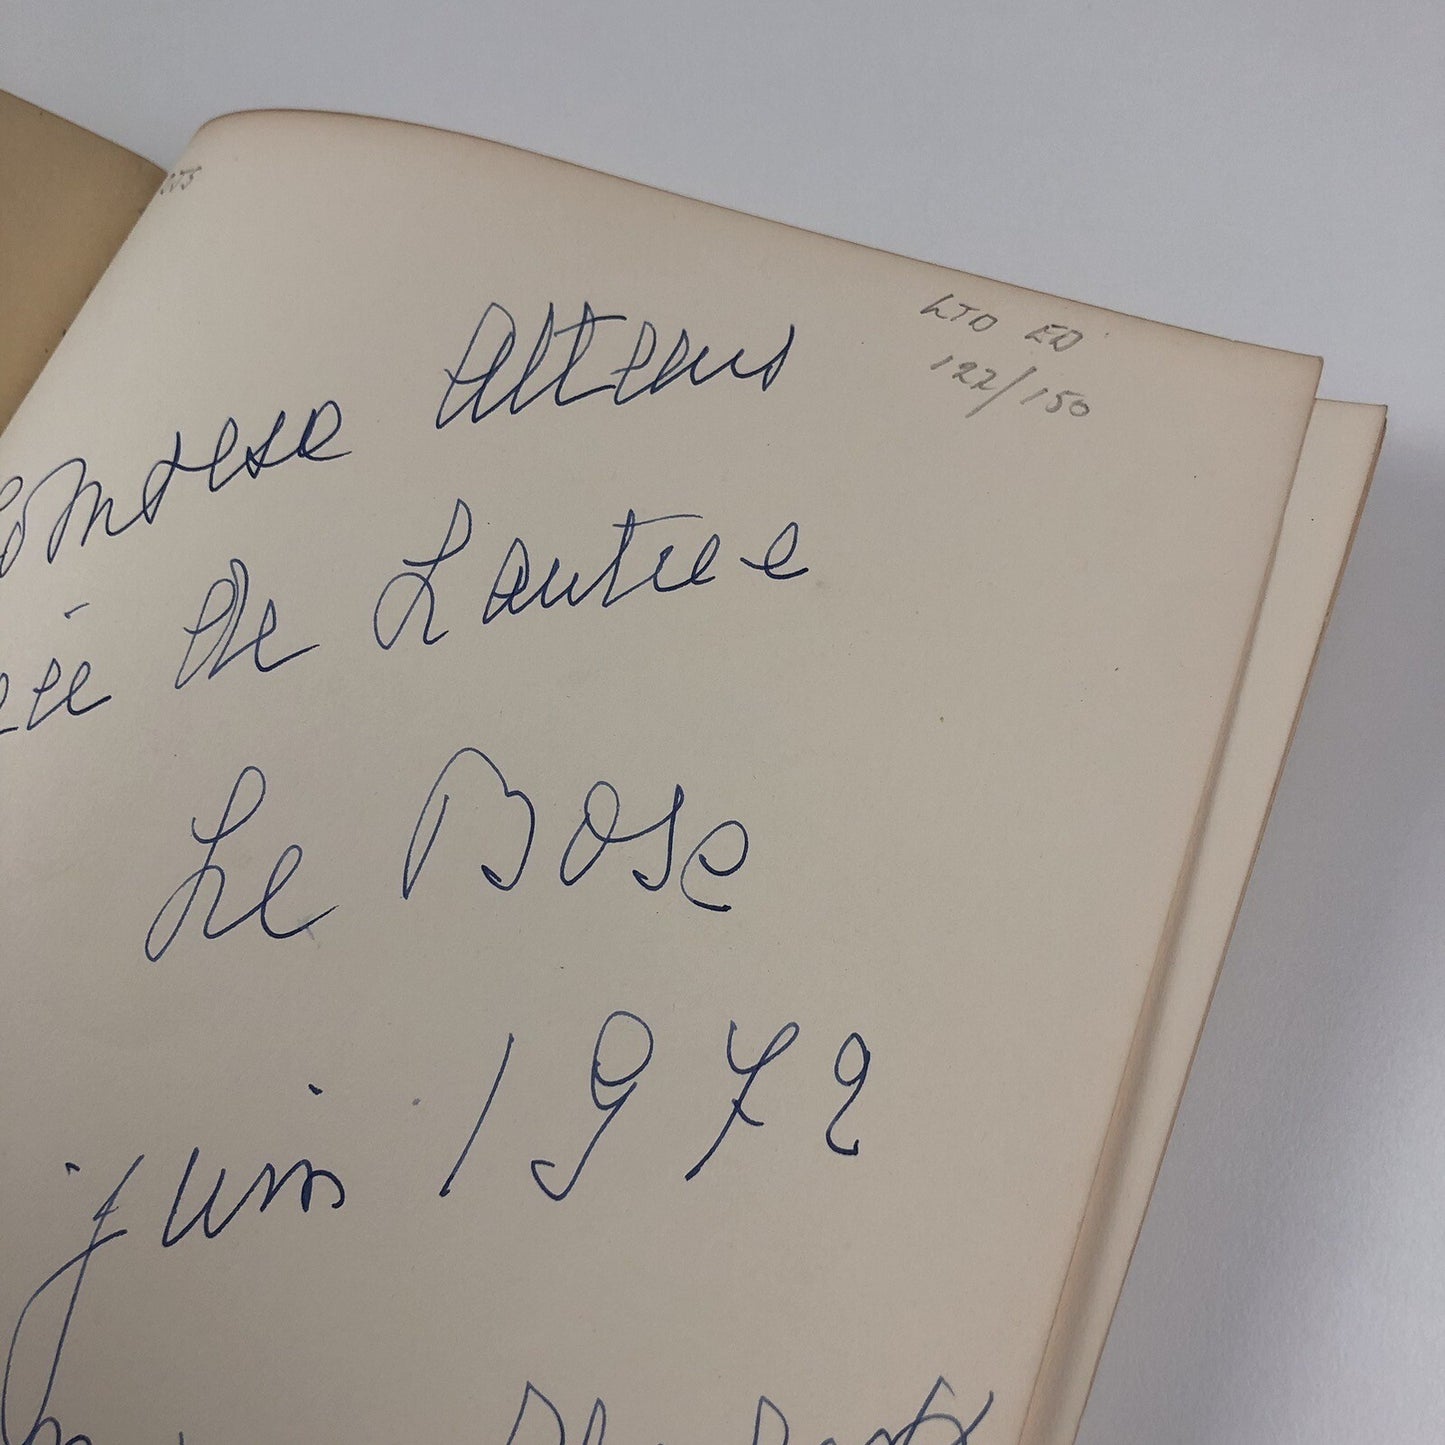 LTD ED
122/150
Comtesse Altems
née de Lautree
Le Bosc
juin 1972